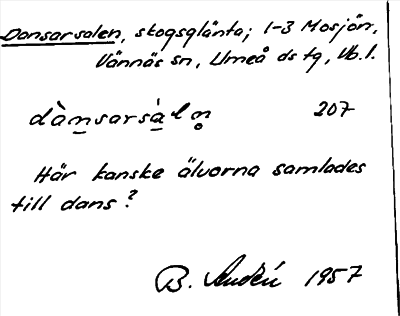 Dansarsalen, skogsglänta; 1-3 Mosjön,
Vännäs sn, Umeå ds tg, Vb. l.
dàn̲sarsà̲ln̥ 207
Här kanske älvorna samlades
till dans?
B. 1957